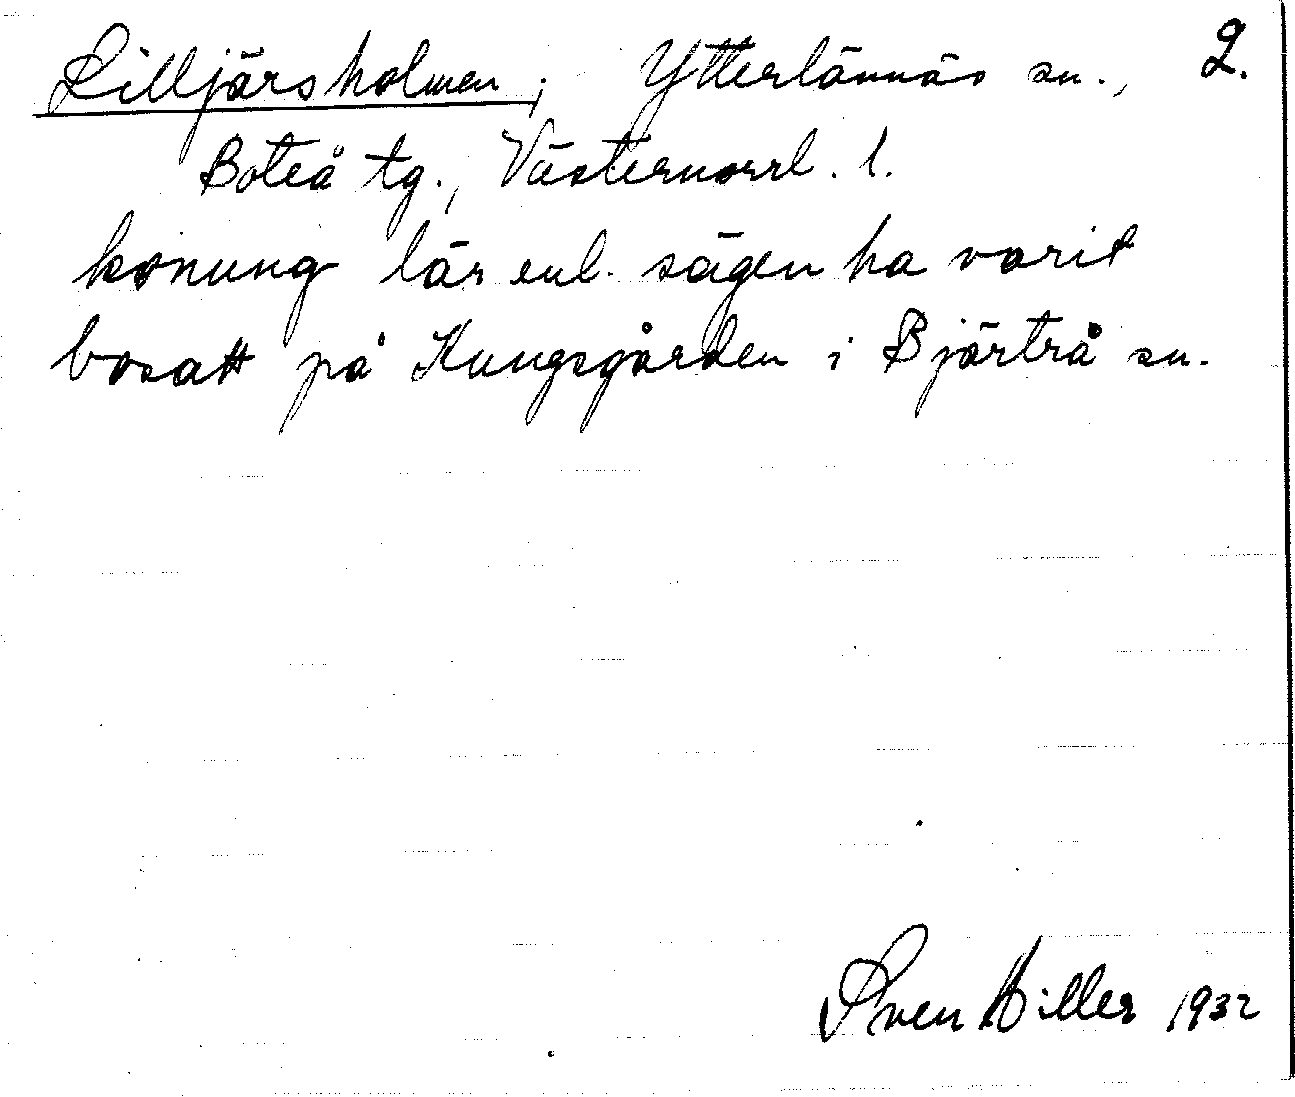 Lilljärsholmen; Ytterlännäs sn., 2.
Boteå tg., Västernorrl. l.
konung lär enl. sägen ha varit
bosatt på Kungsgården i Bjärtrå sn.
Sven Hiller 1932